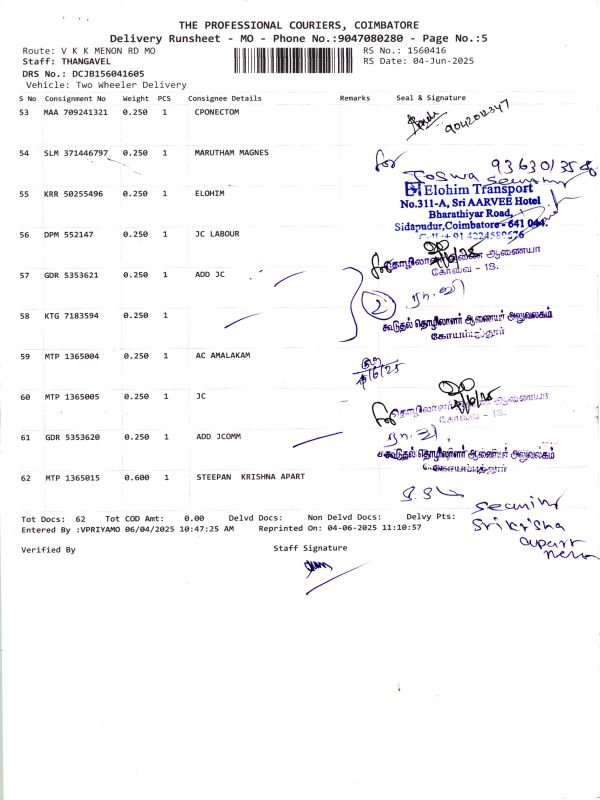 THE PROFESSIONAL COURIERS, COIMBATORE
Delivery Runsheet - MO - Phone No.:9047080280 - Page No.:5
Route: V K K MENON RD MO
RS No.: 1560416
Staff: THANGAVEL
RS Date: 04-Jun-2025
DRS No.: DCJB156041605
Vehicle: Two Wheeler Delivery
S No Consignment No Weight PCS Consignee Details Remarks Seal & Signature
53 MAA 709241321 0.250 1 CPONECTOM
9042012347
54 SLM 371446797 0.250 1 MARUTHAM MAGNES
for
Joswa security
55 KRR 50255496 0.250 1 ELOHIM
Elohim Transport
No.311-A, Sri AARVEE Hotel
Bharathiyar Road,
Sidapudur,Coimbatore - 641 044.
56 DPM 552147 0.250 1 JC LABOUR
கோவை - 18.
57 GDR 5353621 0.250 1 ADD JC
2
58 KTG 7183594 0.250 1
கூடுதல் தொழிலாளர் ஆணையர் அலுவலகம்
கோயம்புத்தூர்
59 MTP 1365004 0.250 1 AC AMALAKAM
4/6/25
60 MTP 1365005 0.250 1 JC
கோவை - 18.
61 GDR 5353620 0.250 1 ADD JCOMM
கூடுதல் தொழிலாளர் ஆணையர் அலுவலகம்
கோயம்புத்தூர்
62 MTP 1365015 0.600 1 STEEPAN KRISHNA APART
Tot Docs: 62 Tot COD Amt: 0.00 Delvd Docs: Non Delvd Docs: Delvy Pts:
Entered By :VPRIYAMO 06/04/2025 10:47:25 AM Reprinted On: 04-06-2025 11:10:57
Srikrisha
apart
Verified By Staff Signature